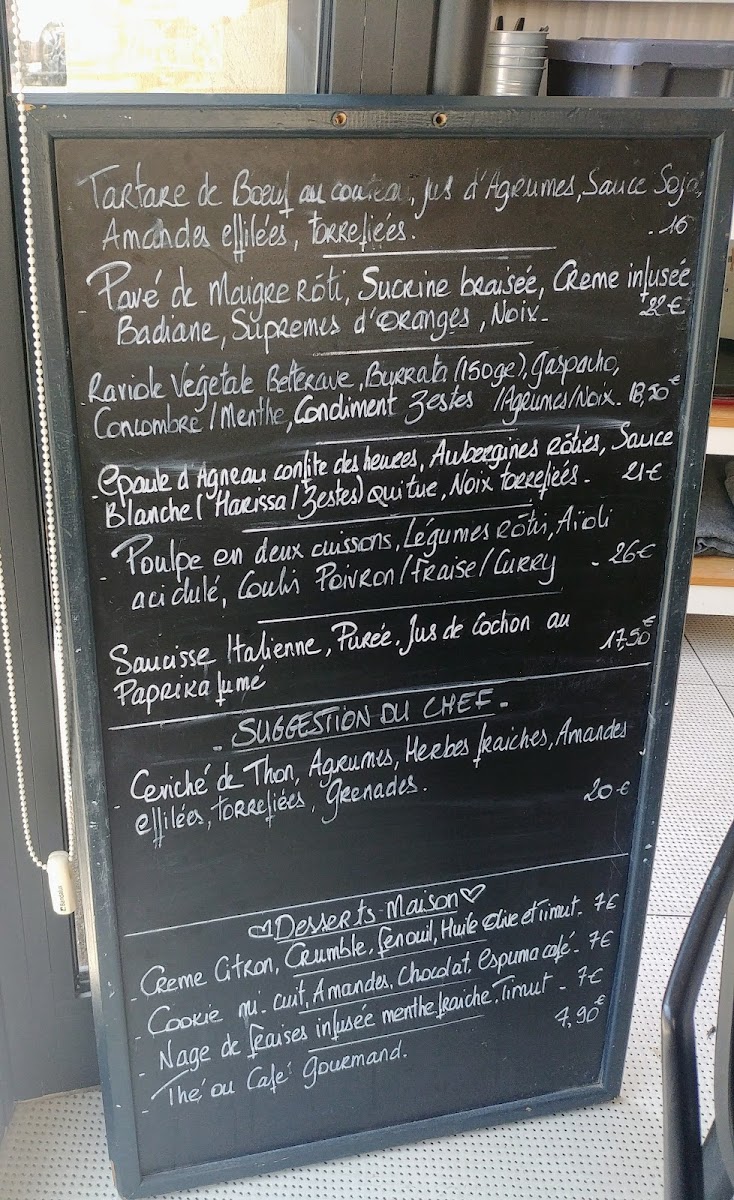 Tartare de Boeuf au couteau, jus d'Agrumes, Sauce Soja,
Amandes effilées, torrefiées. - 16
- Pavé de Maigre Rôti, Sucrine braisée, Creme infusée
Badiane, Supremes d'Oranges, Noix - 22€
- Raviole Végetale Betterave, Burrata (150ge), Gaspacho,
Concombre / Menthe, Condiment Zestes / Agrumes / Noix - 18,50€
- Epaule d'Agneau confite des heures, Aubergines rôties, Sauce
Blanche (Harissa / Zestes) qui tue, Noix torrefiées - 21€
- Poulpe en deux cuissons, Légumes rôtis, Aïoli
acidulé, Coulis Poivron / Fraise / Curry - 26€
Saucisse Italienne, Purée, Jus de Cochon au
Paprika fumé 17,50€
- SUGGESTION DU CHEF -
- Ceviché de Thon, Agrumes, Herbes fraiches, Amandes
effilées, torrefiées, Grenades. 20€
♡Desserts Maison♡
- Creme Citron, Crumble, fenouil, Huile olive et timut - 7€
- Cookie mi-cuit, Amandes, Chocolat, espuma café - 7€
- Nage de fraises infusée menthe fraiche, Timut - 7€
- Thé ou Café Gourmand. 7,90€